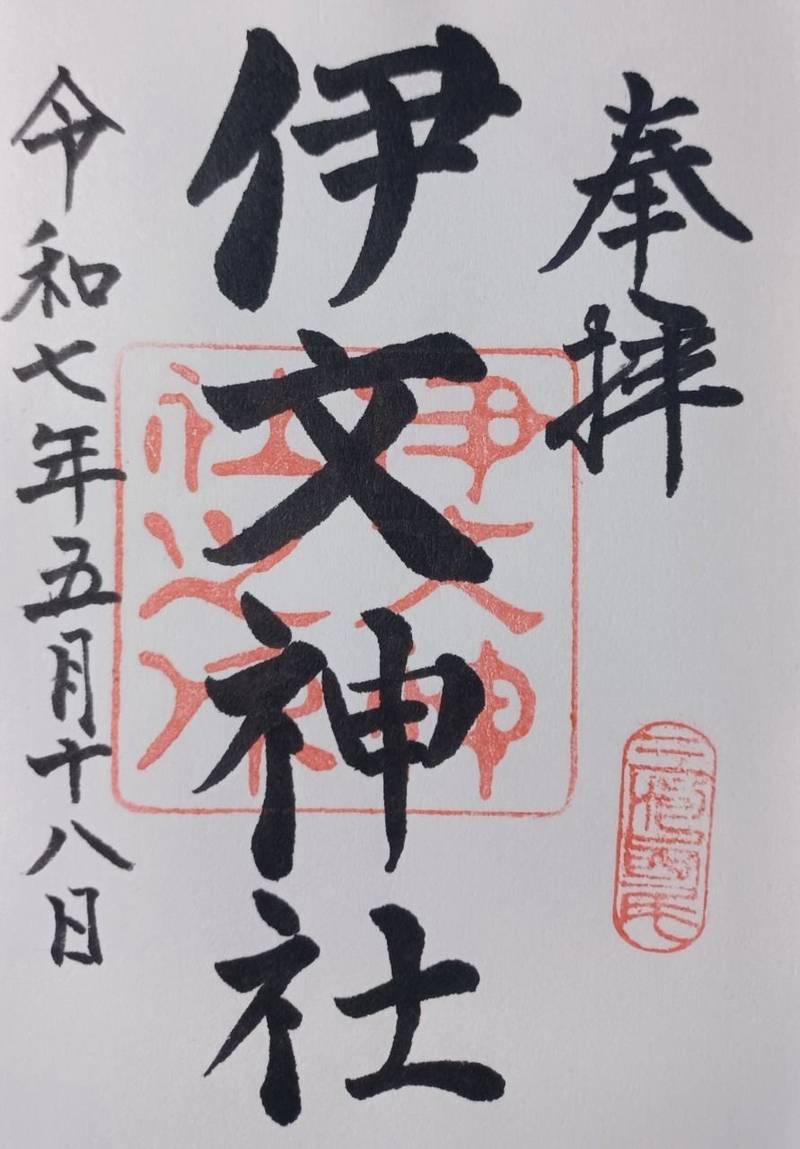 奉拝
伊文神社
令和七年五月十八日
伊文神
社之印